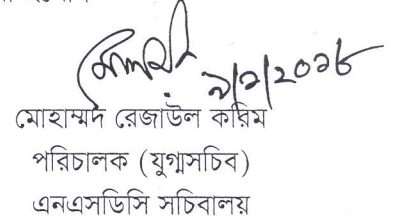 ৯/১/২০১৮
মোহাম্মদ রেজাউল করিম
পরিচালক (যুগ্মসচিব)
এনএসডিসি সচিবালয়